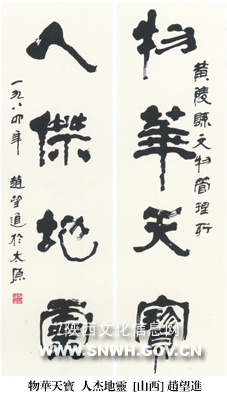 黄陵縣文物管理所
物華天寶
人傑地靈
一九八四年 趙望進於太原
陕西文化信息网
WWW.SNWH.GOV.CN
物華天寶 人杰地靈 [山西] 趙望進